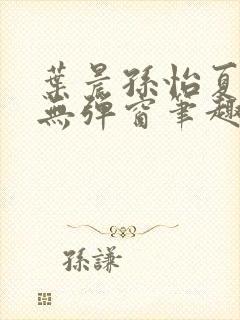 葉晨孫怡夏
無彈窗筆趣
孫謙